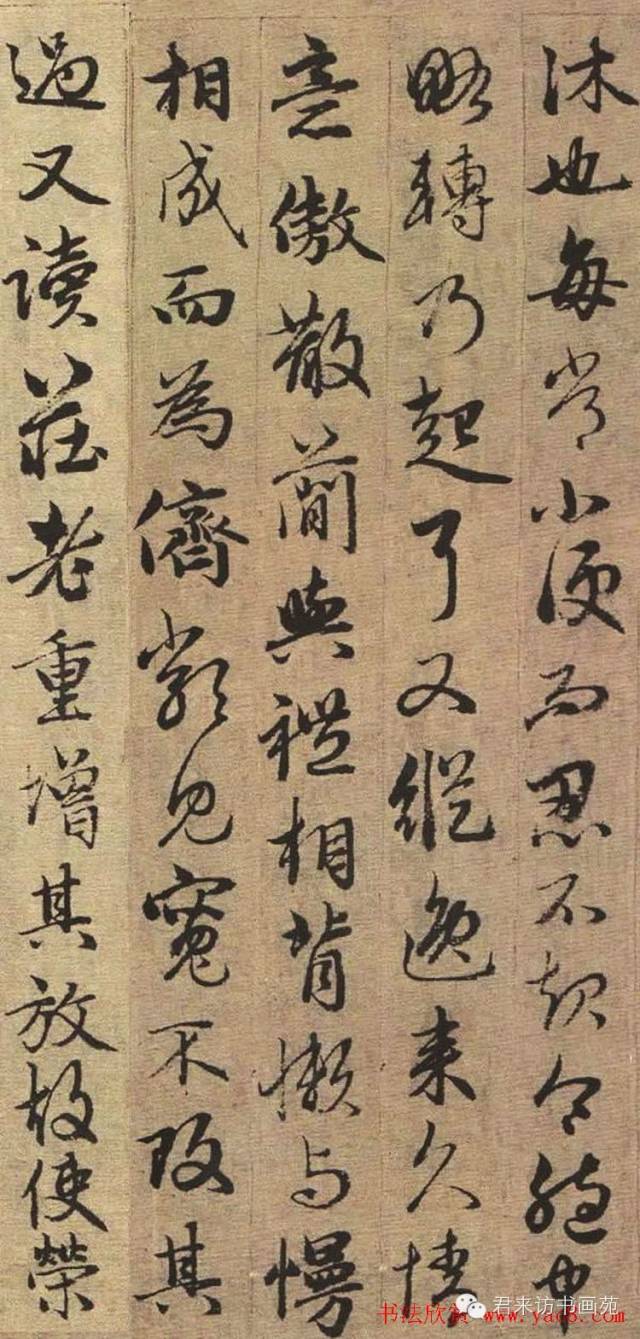 沐也每常小便而忍不起令胞中
略轉乃起耳又縱逸來久情
意傲散簡與禮相背懶与慢
相成而為儕類見寬不攻其
過又讀莊老重增其放故使榮
君来访书画苑
书法欣赏 www.yac8.com